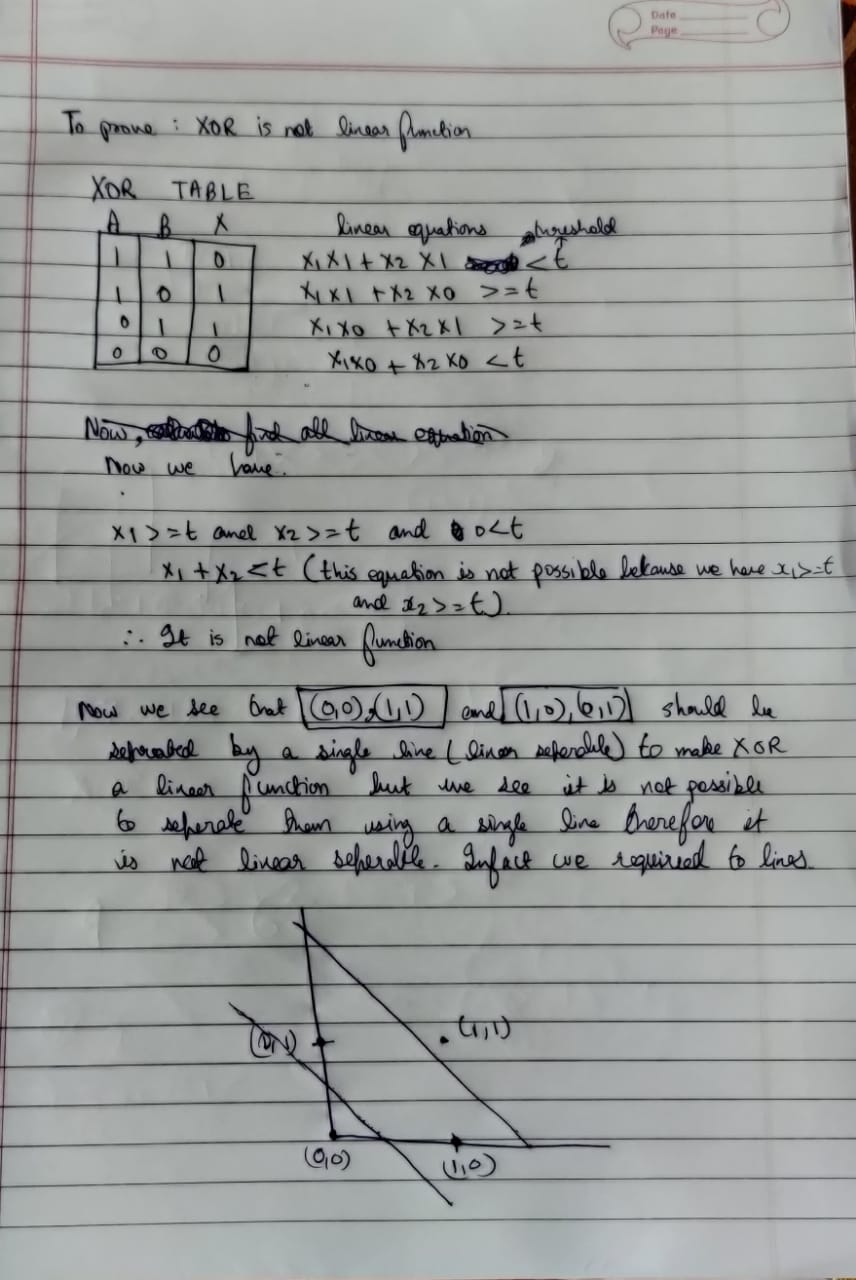 Date
Page
To prove : XOR is not linear function
XOR TABLE
A B X linear equations threshold
1 1 0 x1 x 1 + x2 x 1 < t
1 0 1 x1 x 1 + x2 x 0 >= t
0 1 1 x1 x 0 + x2 x 1 >= t
0 0 0 x1 x 0 + x2 x 0 < t
Now, find all linear equation
Now we have:
x1 >= t and x2 >= t and 0 < t
x1 + x2 < t (this equation is not possible because we have x1 >= t
and x2 >= t).
∴ It is not linear function
Now we see that (0,0), (1,1) and (1,0), (0,1) should be
seperated by a single line (linear seperable) to make XOR
a linear function but we see it is not possible
to seperate them using a single line therefore it
is not linear seperable. Infact we required to lines.
(0,1) (1,1)
(0,0) (1,0)